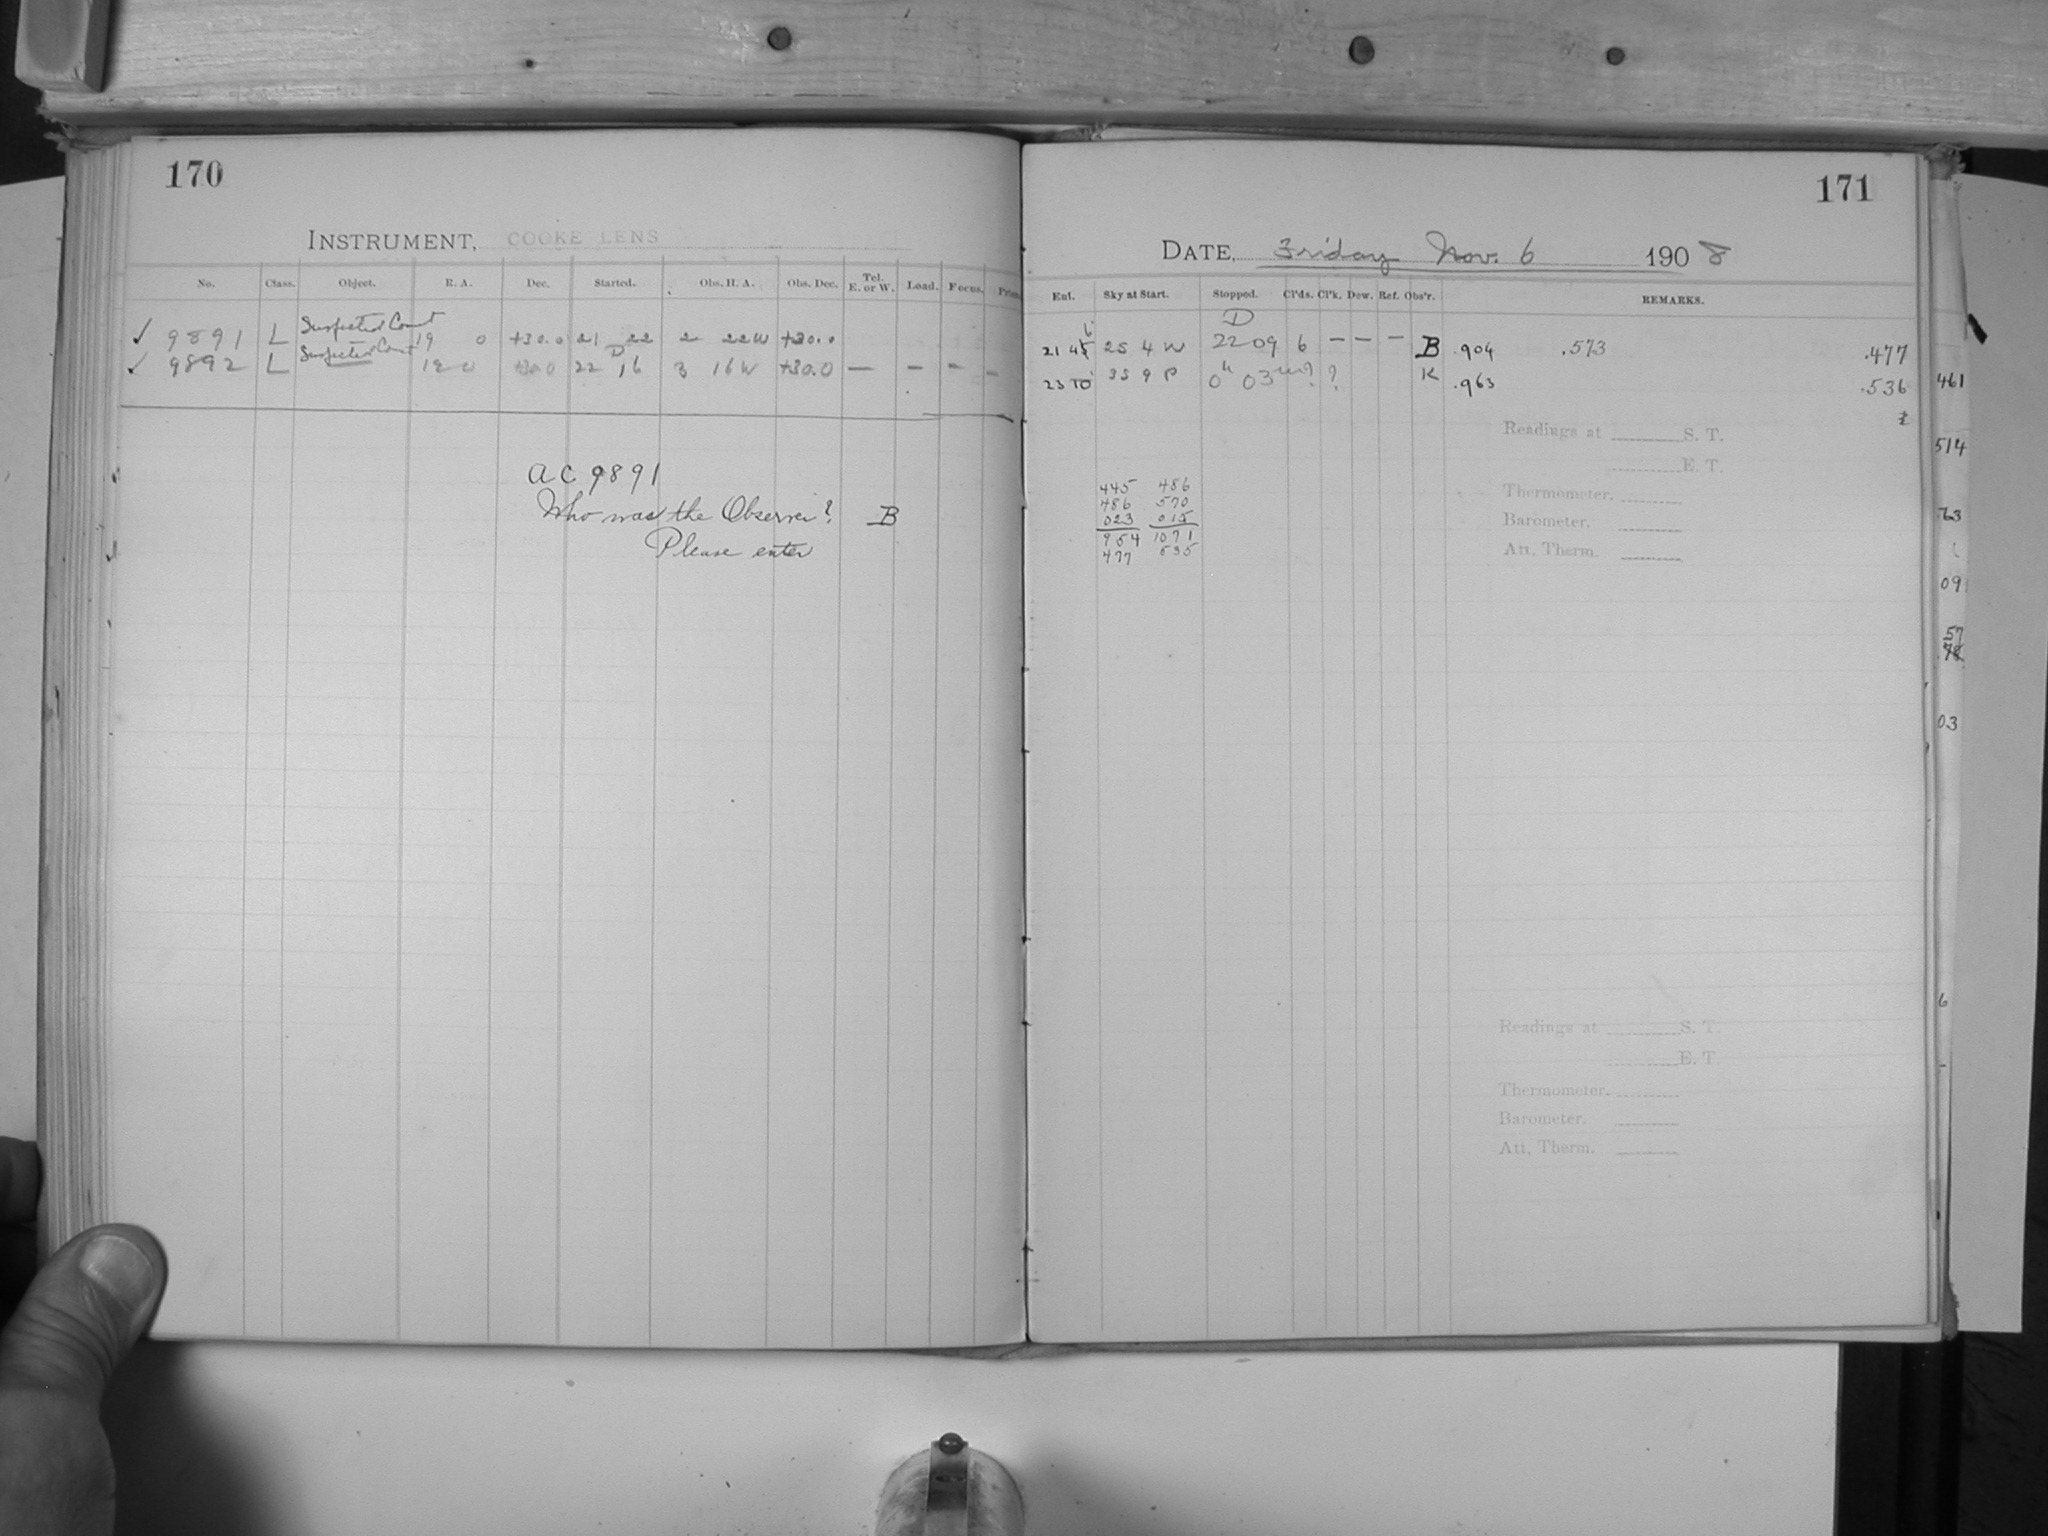 170
INSTRUMENT, COOKE LENS
No. Class. Object. R. A. Dec. Started. Obs. H. A. Obs. Dec. Tel. E. or W. Load. Focus. Prism
✓ 9891 L Suspected Comet 19 0 +30.0 21 22 2 22W +30.0
✓ 9892 L Suspected Comet 19 0 +30.0 22 D 16 3 16W +30.0 — — — —
AC 9891
Who was the Observer? B
Please enter
171
DATE, Friday Nov. 6 1908
Ent. Sky at Start. Stopped. Cl'ds. Cl'k. Dew. Ref. Obs'r. REMARKS.
21 45 25 4 W D 22 09 6 — — — B .904 .573 .477
23 10 35 9 P 0h 03m? ? K .963 .536
Readings at S. T.
E. T.
Thermometer.
Barometer.
Att. Therm.
445 486
486 570
023 015
954 1071
477 535
Readings at S. T.
E. T.
Thermometer.
Barometer.
Att. Therm.
461
514
63
09
57
78
03
6